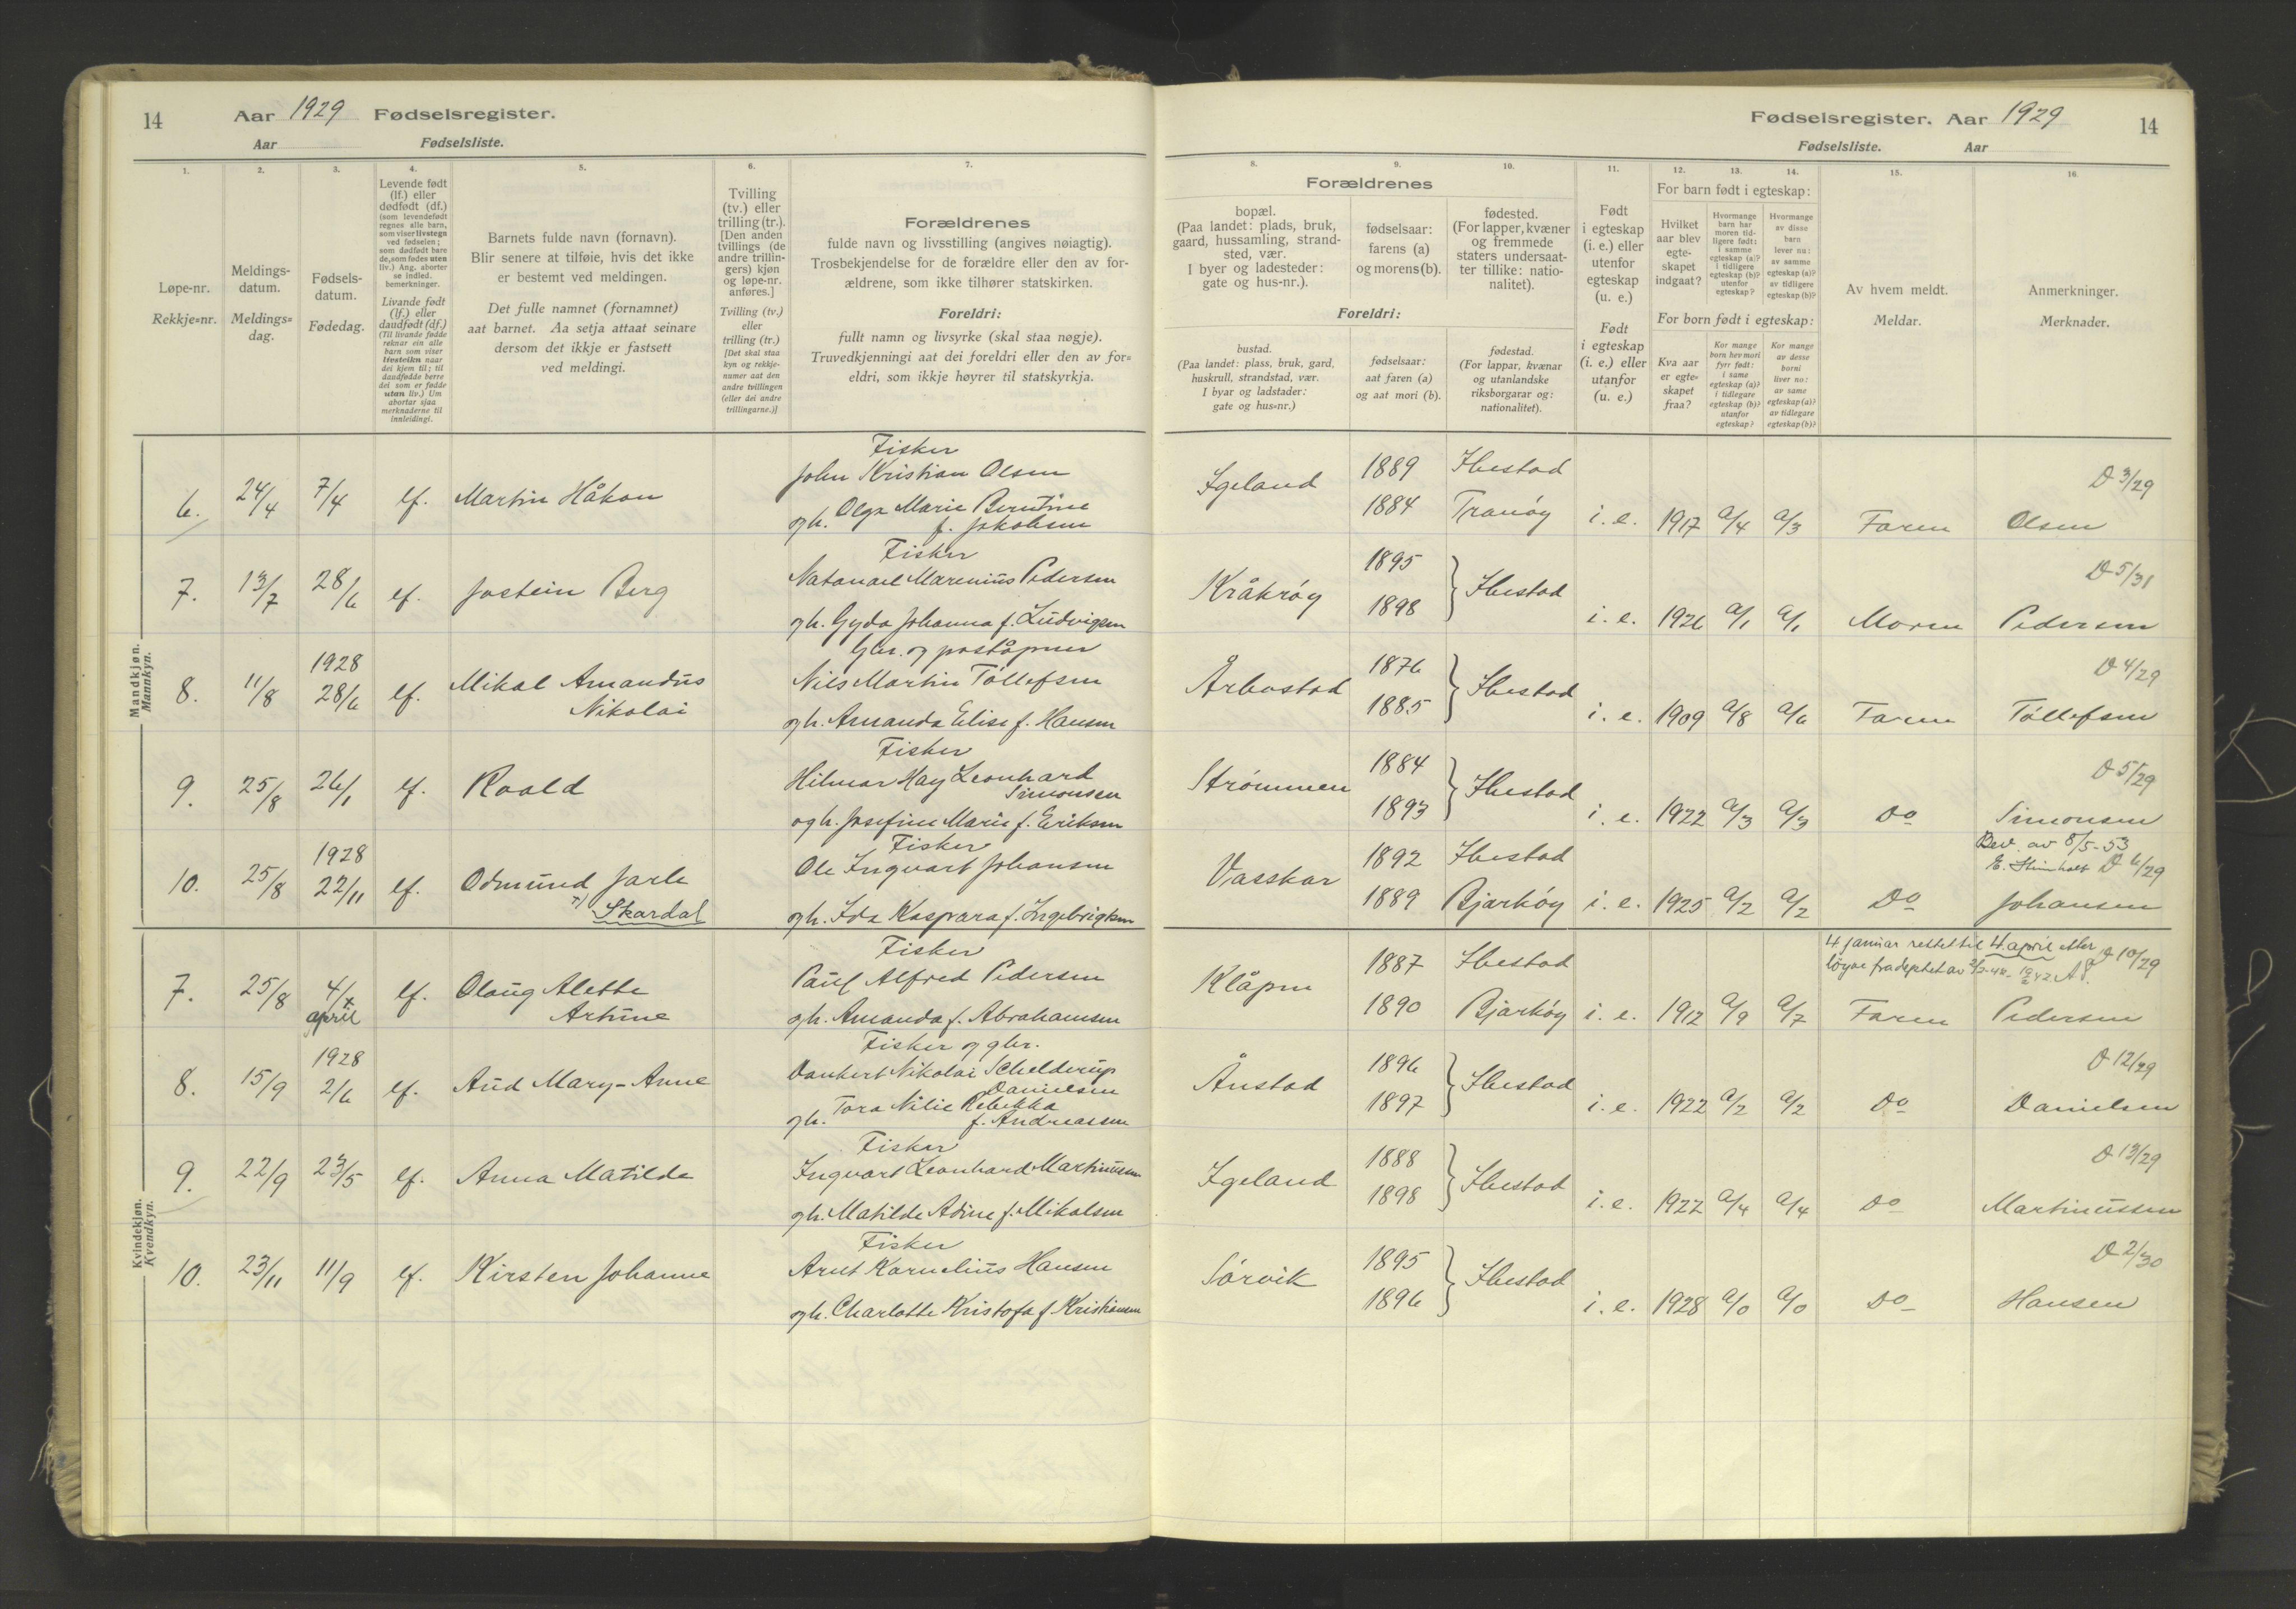 14 Aar 1929 Fødselsregister.
Aar Fødselsliste.
1. 2. 3. 4. 5. 6. 7.
Løpe-nr.
Rekkje=nr.
Meldings-
datum.
Meldings=
dag.
Fødsels-
datum.
Fødedag.
Levende født
(lf.) eller
dødfødt (df.)
(som levendefødt
regnes alle barn,
som viser livstegn
ved fødselen;
som dødfødt bare
de, som fødes uten
liv.) Ang. aborter
se indled.
bemerkninger.
Livande født
(lf.) eller
daudfødt (df.)
(Til livande fødde
reknar ein alle
barn som viser
livsteikn naar
dei kjem til; til
daudfødde berre
dei som er fødde
utan liv.) Um
abortar sjaa
merknaderne til
innleidingi.
Barnets fulde navn (fornavn).
Blir senere at tilføie, hvis det ikke
er bestemt ved meldingen.
Det fulle namnet (fornamnet)
aat barnet. Aa setja attaat seinare
dersom det ikkje er fastsett
ved meldingi.
Tvilling
(tv.) eller
trilling (tr.).
[Den anden
tvillings (de
andre trillin-
gers) kjøn
og løpe-nr.
anføres.]
Tvilling (tv.)
eller
trilling (tr.)
[Det skal staa
kyn og rekkje-
numer aat den
andre tvillingen
(eller dei andre
trillingarne.)]
Forældrenes
fulde navn og livsstilling (angives nøiagtig).
Trosbekjendelse for de forældre eller den av for-
ældrene, som ikke tilhører statskirken.
Foreldri:
fullt namn og livsyrke (skal staa nøgje).
Truvedkjenningi aat dei foreldri eller den av for=
eldri, som ikkje høyrer til statskyrkja.
Mandkjøn.
Mannkyn.
6. 24/4 7/4 lf. Martin Håkon
Fisker
John Kristian Olsen
og h. Olga Marie Berntine
f. Jakobsen
7. 13/7 28/6 lf. Jostein Berg
Fisker
Natanael Marenius Pedersen
og h. Gyda Johanna f. Ludvigsen
8. 11/8 1928
28/6 lf. Mikal Amandus
Nikolai
Gbr. og poståpner
Nils Martin Tøllefsen
og h. Amanda Elise f. Hansen
9. 25/8 26/1 lf. Roald
Fisker
Hilmar Hay Leonhard
Simonsen
og h. Josefine Marie f. Eriksen
10. 25/8 1928
22/11 lf. Odmund Jarle
Skardal
Fisker
Ole Ingvart Johansen
og h. Ida Kaspara f. Ingebrigtsen
Kvindekjøn.
Kvendkyn.
7. 25/8 4/x
april lf. Olaug Alette
Artine
Fisker
Paul Alfred Pedersen
og h. Amanda f. Abrahamsen
8. 15/9 1928
2/6 lf. Aud Mary-Anne
Fisker og gbr.
Dankert Nikolai Schelderup
Danielsen
og h. Tora Nilie Rebekka
f. Andreassen
9. 22/9 23/5 lf. Anna Matilde
Fisker
Ingvart Leonhard Martinussen
og h. Matilde Adine f. Mikalsen
10. 23/11 11/9 lf. Kirsten Johanne
Fisker
Arnt Kornelius Hansen
og h. Charlotte Kristofa f. Kristiansen
Fødselsregister. Aar 1929 14
Fødselsliste. Aar
8. 9. 10. 11. 12. 13. 14. 15. 16.
Forældrenes
bopæl.
(Paa landet: plads, bruk,
gaard, hussamling, strand-
sted, vær.
I byer og ladesteder:
gate og hus-nr.).
fødselsaar:
farens (a)
og morens (b).
fødested.
(For lapper, kvæner
og fremmede
staters undersaat-
ter tillike: natio-
nalitet).
Foreldri:
bustad.
(Paa landet: plass, bruk, gard,
huskrull, strandstad, vær.
I byar og ladstader:
gate og hus=nr.)
fødselsaar:
aat faren (a)
og aat mori (b).
fødestad.
(For lappar, kvænar
og utanlandske
riksborgarar og:
nationalitet).
Født
i egteskap
(i. e.) eller
utenfor
egteskap
(u. e.)
Født
i egteskap
(i. e.) eller
utanfor
(u. e.)
For barn født i egteskap:
Hvilket
aar blev
egte-
skapet
indgaat?
Hvormange
barn har
moren tid-
ligere født:
i samme
egteskap (a)?
i tidligere
egteskap (b)?
utenfor
egteskap?
Hvormange
av disse
barn
lever nu:
av samme
egteskap (a)?
av tidligere
egteskap (b)?
For born født i egteskap:
Kva aar
er egte=
skapet
fraa?
Kor mange
born hev mori
fyrr født:
i same
egteskap (a)?
i tidlegare
egteskap (b)?
utanfor
egteskap?
Kor mange
av desse
borni
liver no:
av same
egteskap (a)?
av tidlegare
egteskap (b)?
Av hvem meldt.
Meldar.
Anmerkninger.
Merknader.
Igeland 1889 Ibestad
1884 Tranøy i. e. 1917 a/4 a/3 Faren D 3/29
Olsen
Kråkrøy 1895
1898 Ibestad i. e. 1926 a/1 a/1 Moren D 5/31
Pedersen
Årbostad 1876
1885 Ibestad i. e. 1909 a/8 a/6 Faren D 4/29
Tøllefsen
Strømmen 1884
1893 Ibestad i. e. 1922 a/3 a/3 Do D 5/29
Simonsen
Vasskar 1892 Ibestad
1889 Bjarkøy i. e. 1925 a/2 a/2 Do
Bev. av 8/5-53
D 6/29
Johansen
Klåpen 1887 Ibestad
1890 Bjarkøy i. e. 1912 a/9 a/7 Faren
4. januar rettet til 4. april etter
D 10/29
Pedersen
Ånstad 1896
1897 Ibestad i. e. 1922 a/2 a/2 Do D 12/29
Danielsen
Igeland 1888
1898 Ibestad i. e. 1922 a/4 a/4 Do D 13/29
Martinussen
Sørvik 1895
1896 Ibestad i. e. 1928 a/0 a/0 Do D 2/30
Hansen